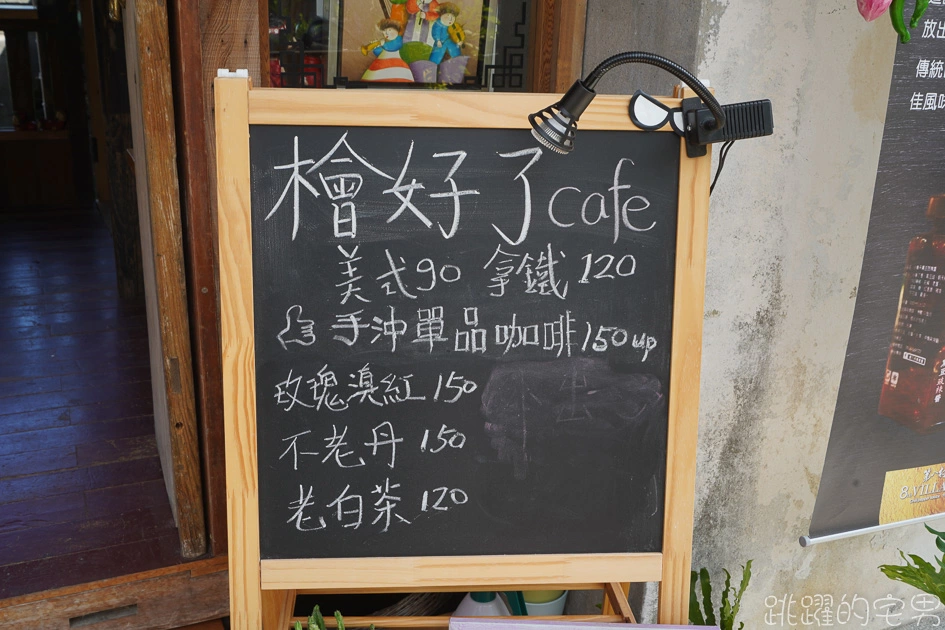 檜好了cafe
美式90 拿鐵120
手沖單品咖啡150up
玫瑰滇紅150
不老丹150
老白茶120
放出
傳統
佳風味
跳躍的宅男